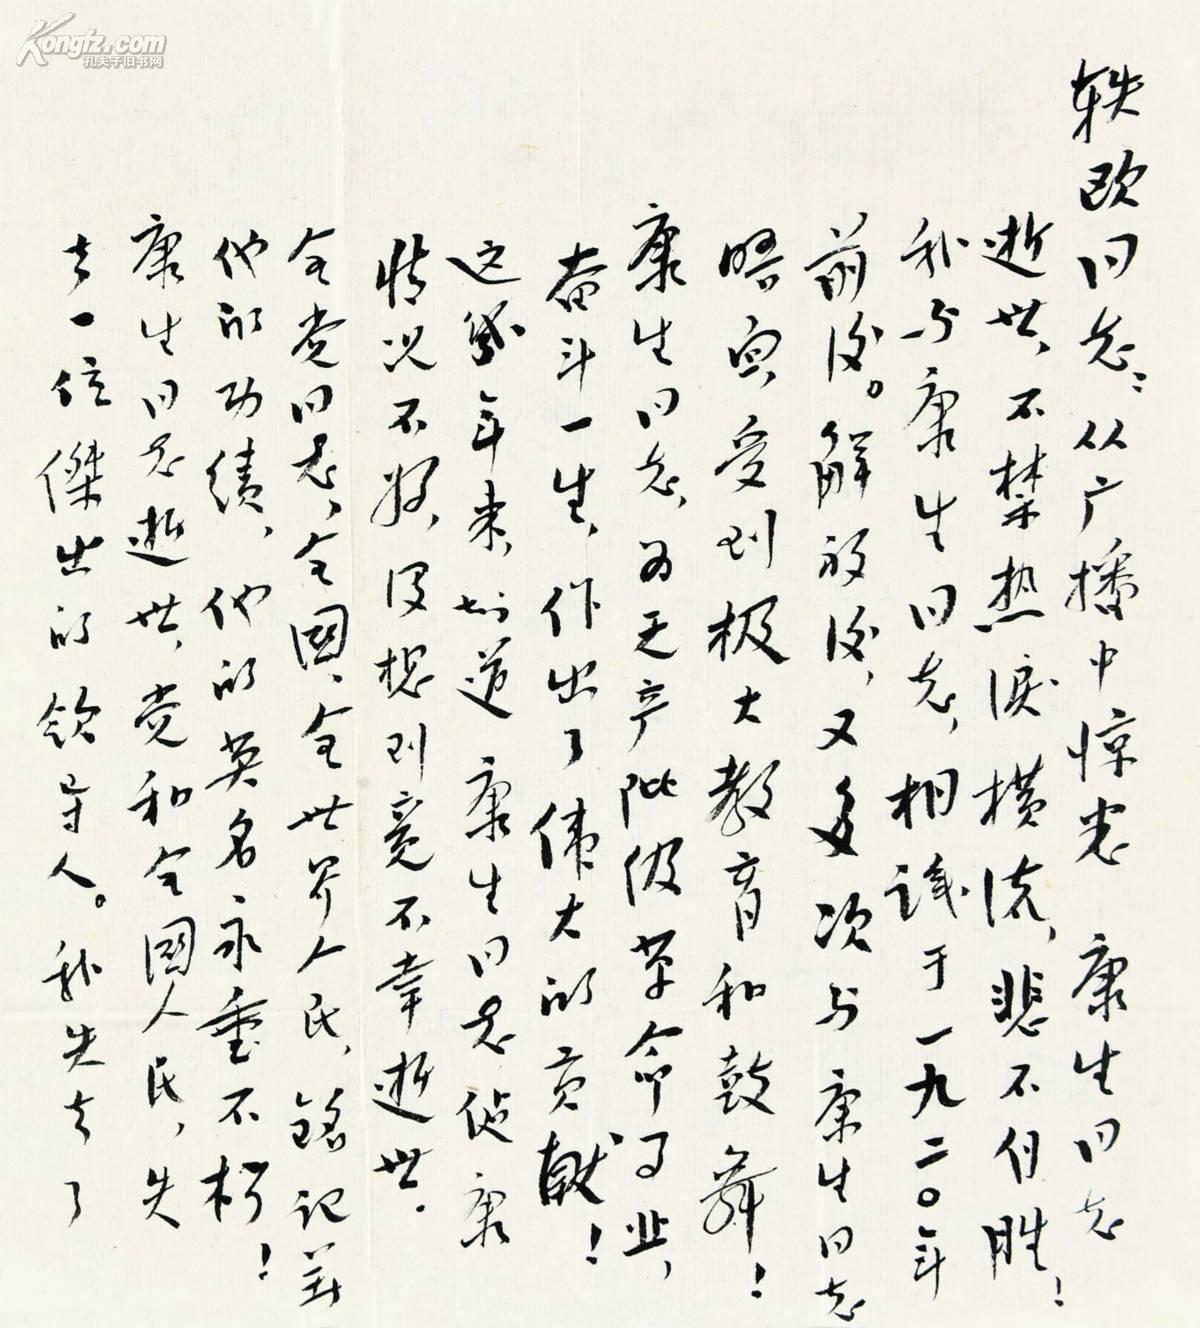 Kongfz.com
孔夫子旧书网
轶欧同志：从广播中惊悉 康生同志
逝世，不禁热泪横流，悲不自胜！
我与康生同志，相识于一九二〇年
前后。解放后，又多次与康生同志
晤面，受到极大教育和鼓舞！
康生同志，为无产阶级革命事业，
奋斗一生，作出了伟大的贡献！
这几年来，知道康生同志健康
情况不好，没想到竟不幸逝世。
全党同志，全国、全世界人民，铭记着
他的功绩，他的英名永垂不朽！
康生同志逝世，党和全国人民，失
去一位傑出的领导人。我失去了